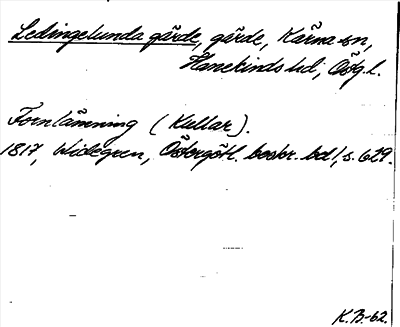 Ledingelunda gärde, gärde, Kärna sn,
Hanekinds hd, Ög.l.
Fornlämning (Kullar).
1817, Widegren, Östergötl. beskr. bd 1, s. 629.
K.B.-62.